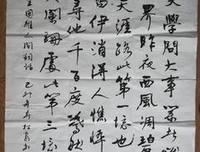 學問大事業
界昨夜西風凋碧
天涯路此第一境也
伊消得人憔悴
尋他千百度驀然
闌珊處此第三境
王國維人間詞話